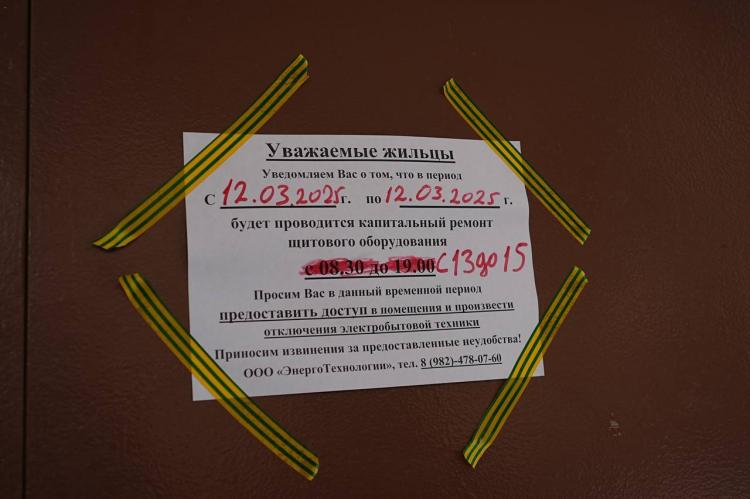 Уважаемые жильцы
Уведомляем Вас о том, что в период
С 12.03.2025г. по 12.03.2025 г.
будет проводится капитальный ремонт
щитового оборудования
с 08.30 до 19.00 С 13 до 15
Просим Вас в данный временной период
предоставить доступ в помещения и произвести
отключения электробытовой техники
Приносим извинения за предоставленные неудобства!
ООО «ЭнергоТехнологии», тел. 8 (982)-478-07-60